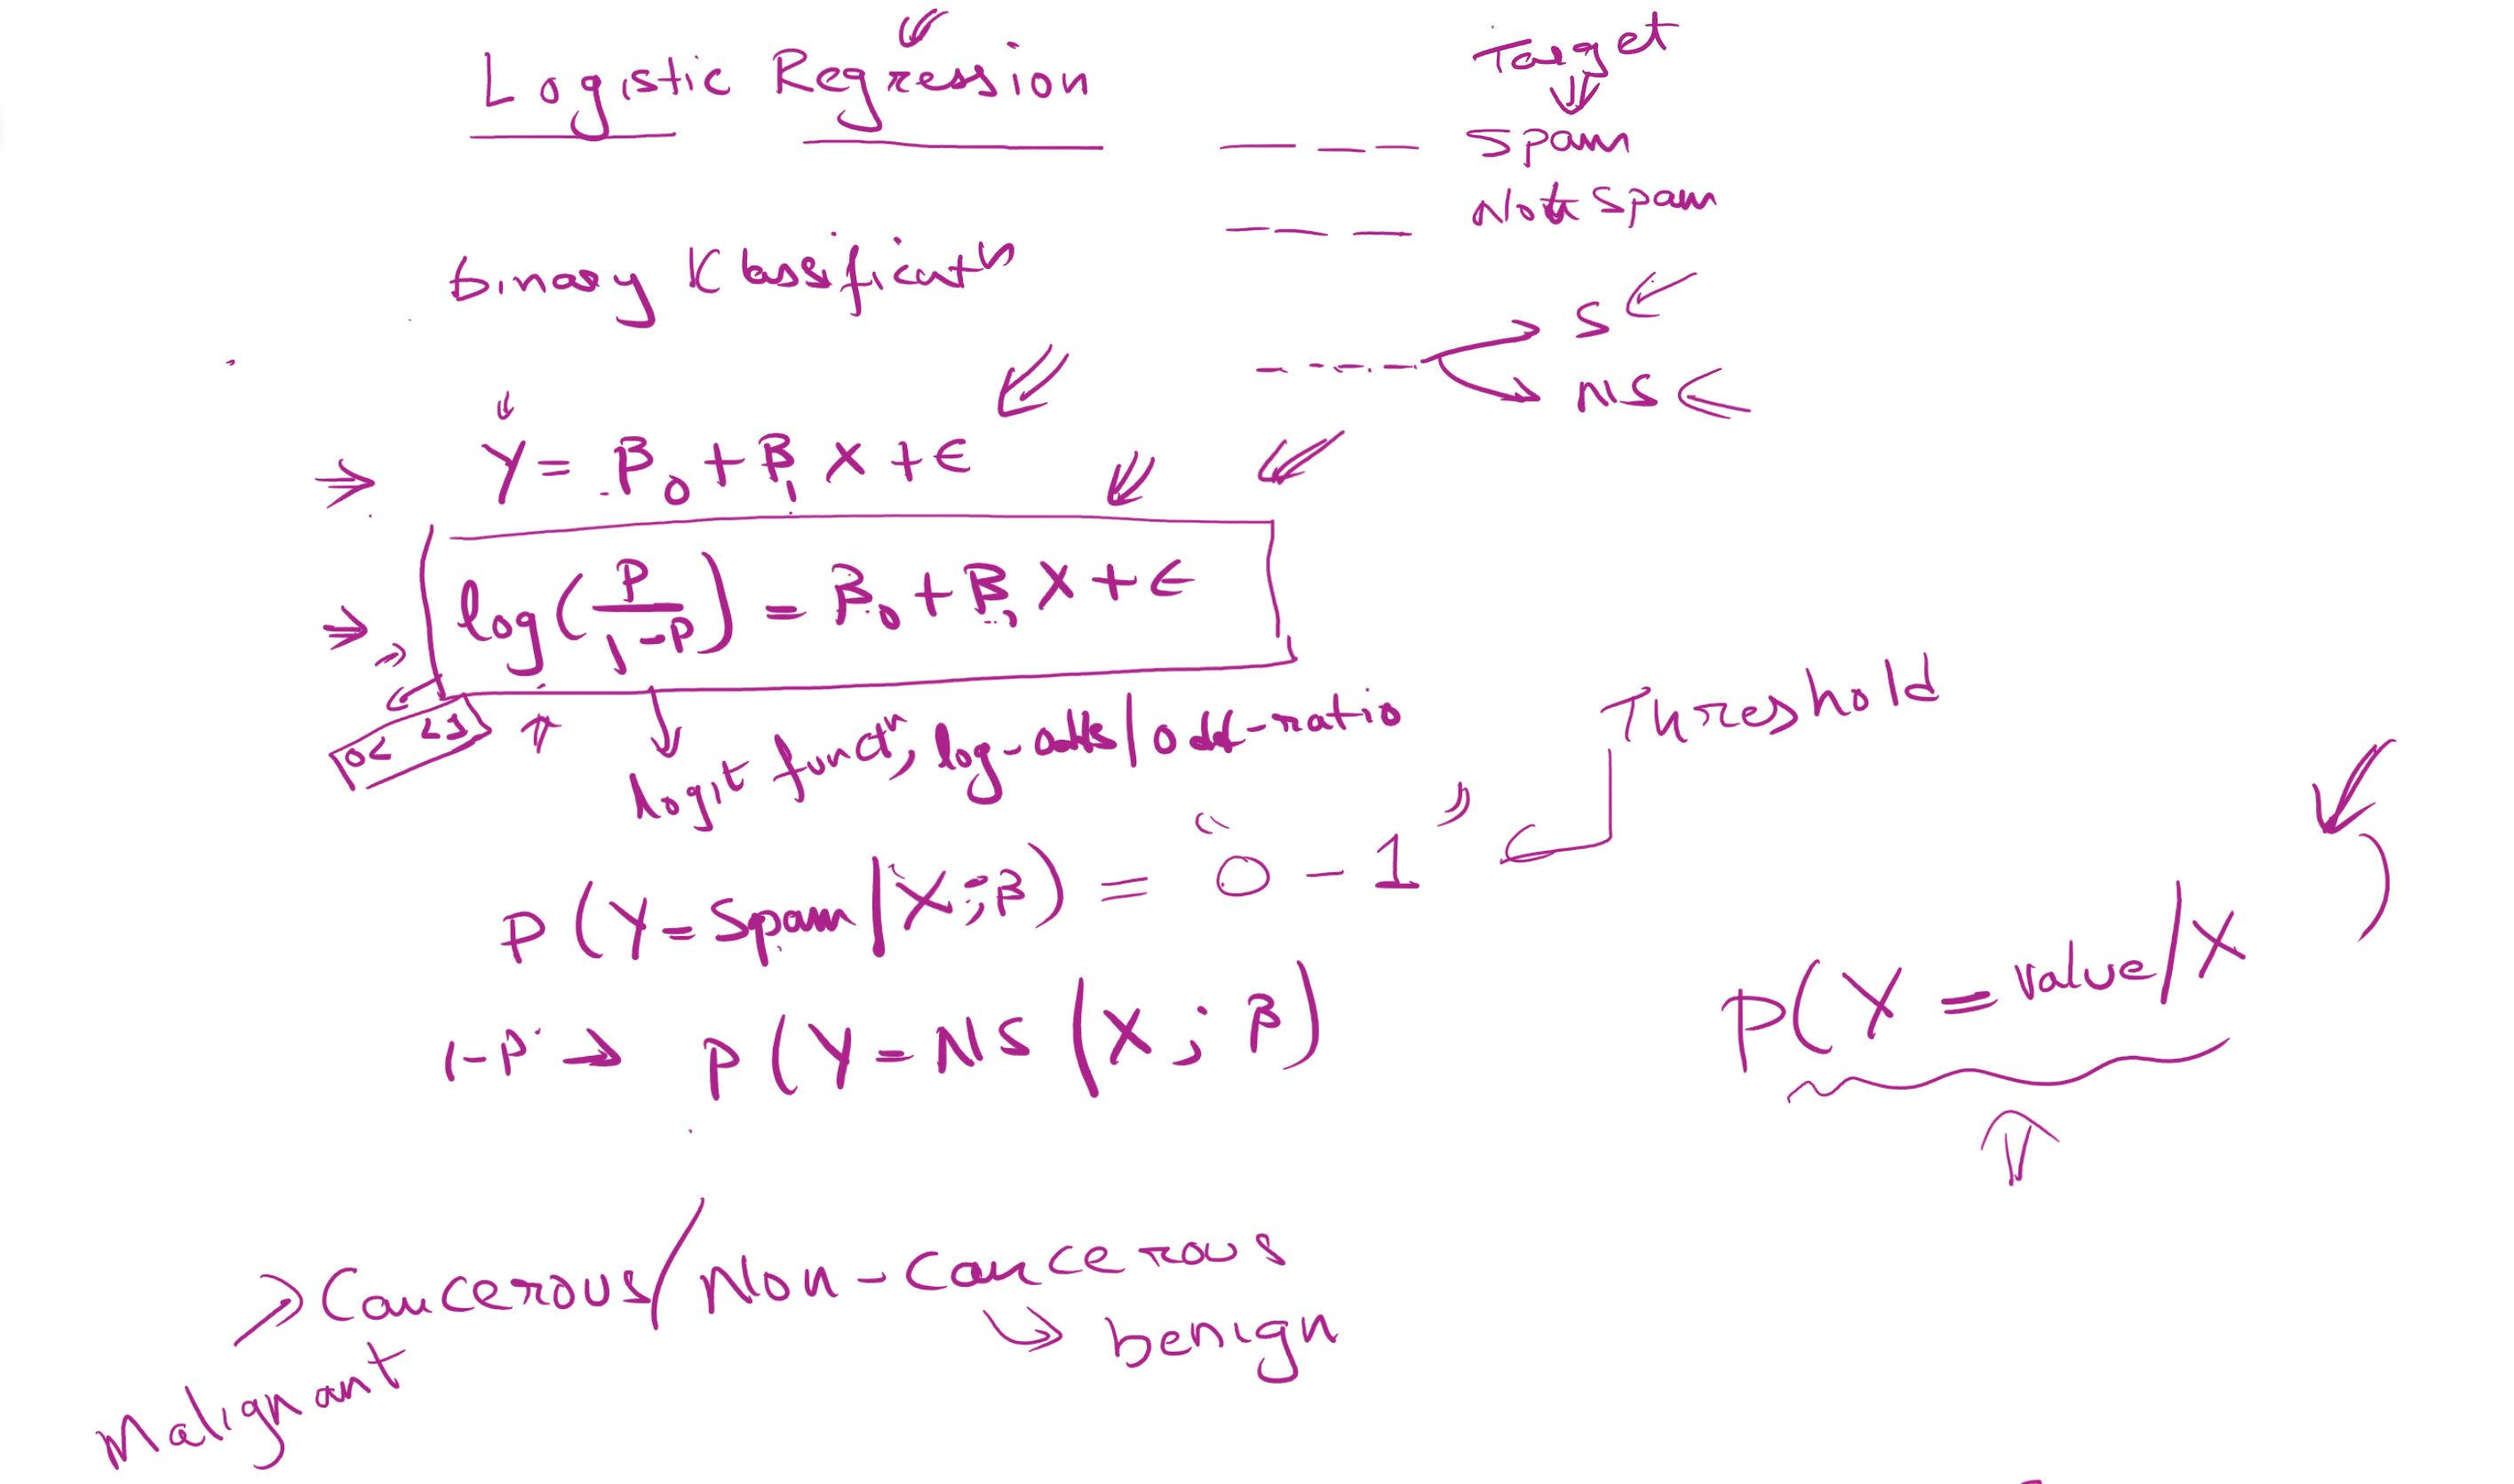 Logistic Regression
Target
Spam
Not spam
binary Klassificatn
S
NS
Y = β₀ + β₁ X + ϵ
log(P/1-P) = β₀ + β₁ X + ϵ
0< <1
logit functn, log-odds/odd-ratio
Threshold
P(Y=Spam|X;β) = "0-1"
P(Y=value/X )
1-P → P(Y=NS|X;β)
Cancerous/Non-cancerous
benign
Malignant